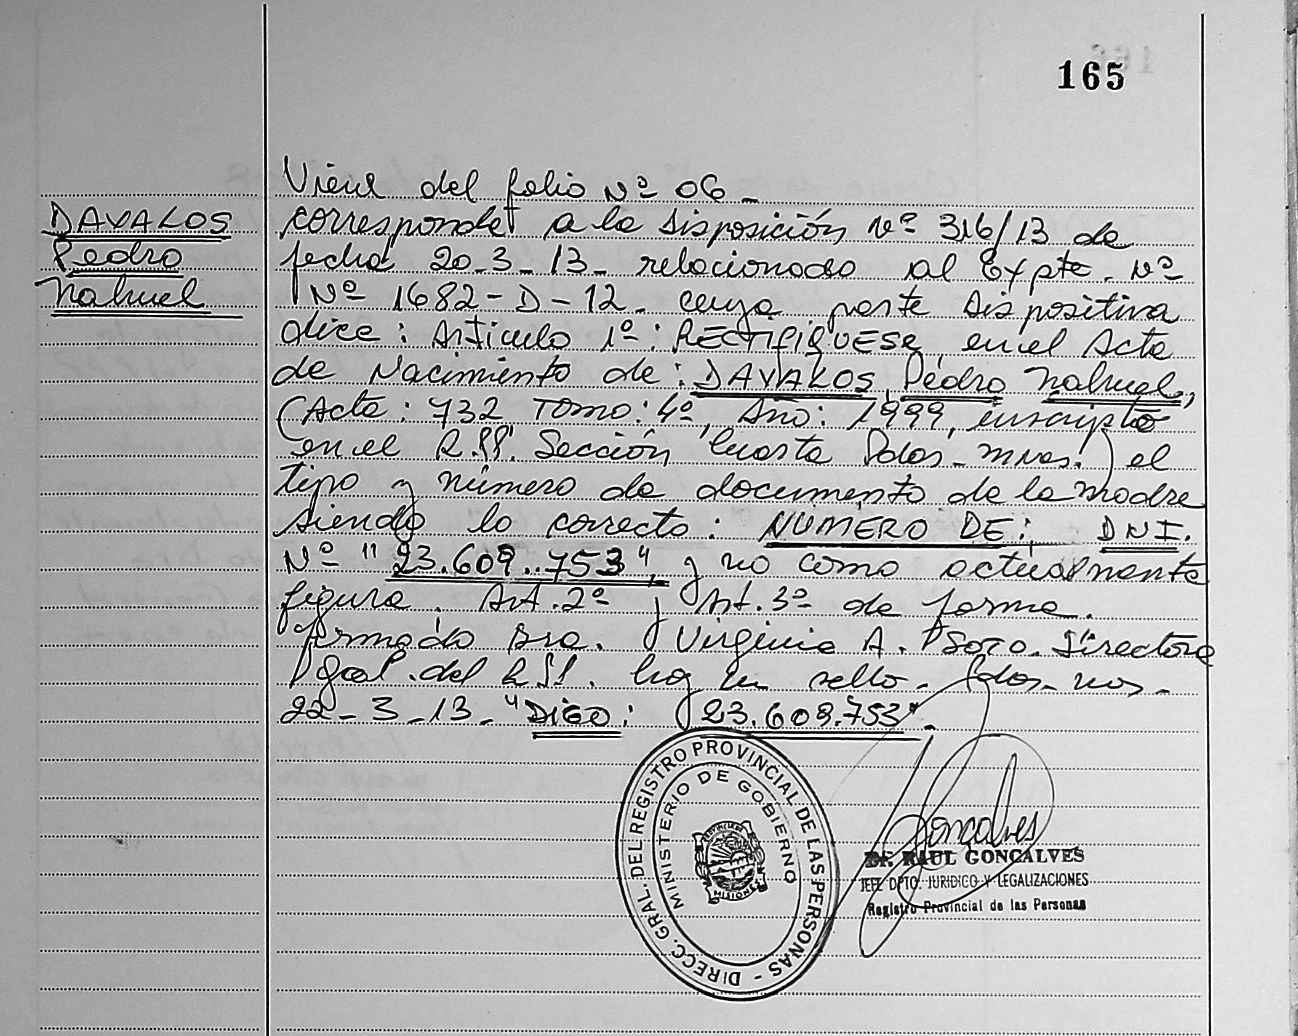 165
Viene del folio Nº 06 -
DAVALOS
Pedro
Nahuel
corresponde a la Disposición Nº 316/13 de
fecha 20-3-13- relacionado al Expte. Nº
Nº 1682-D-12. cuya parte dispositiva
dice: Articulo 1º: RECTIFIQUESE, en el Acta
de Nacimiento de: DAVALOS Pedro Nahuel,
(Acta: 732 Tomo: 4º, Año: 1999, inscripto
en el R.PP. Sección Cuarta Pdas-Mnes.) el
tipo y número de documento de la madre
siendo lo correcto: NUMERO DE: DNI.
Nº "23.609.753", y no como actualmente
figura. Art. 2º y Art. 3º de forma.
Firmado Dra. Virginia A. Soto. Directora
Gral. del R.PP. hay un sello. Pdas-Mnes-
22-3-13-"Digo: 23.609.753".
DIRECC. GRAL. DEL REGISTRO PROVINCIAL DE LAS PERSONAS -
MINISTERIO DE GOBIERNO
MISIONES
Goncalves
Dr. RAUL GONCALVES
JEFE DPTO. JURIDICO Y LEGALIZACIONES
Registro Provincial de las Personas